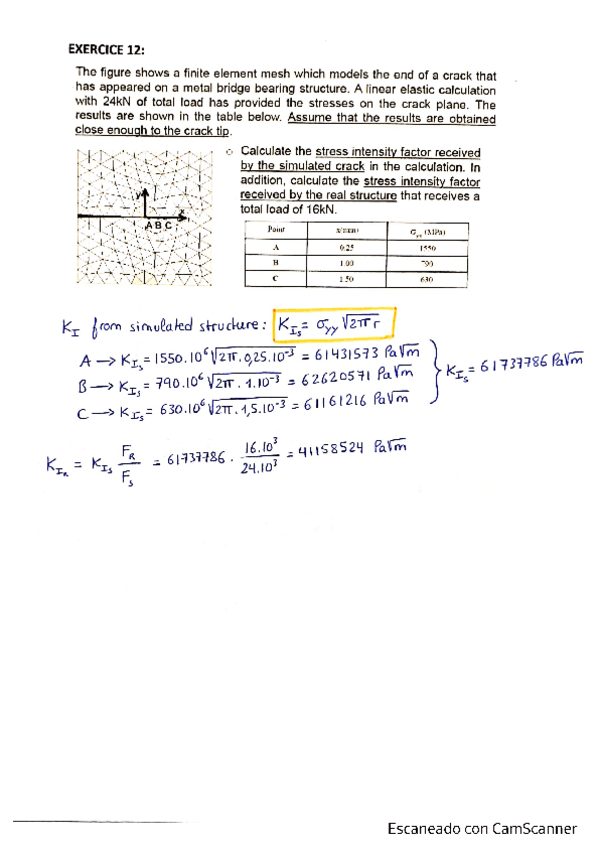 EXERCICE 12:
The figure shows a finite element mesh which models the end of a crack that
has appeared on a metal bridge bearing structure. A linear elastic calculation
with 24kN of total load has provided the stresses on the crack plane. The
results are shown in the table below. Assume that the results are obtained
close enough to the crack tip.
○ Calculate the stress intensity factor received
by the simulated crack in the calculation. In
addition, calculate the stress intensity factor
received by the real structure that receives a
total load of 16kN.
y
x
A B C
Point x(mm) σyy (MPa)
A 0.25 1550
B 1.00 790
C 1.50 630
K_I from simulated structure: K_Is = σyy √2πr
A → K_Is = 1550.10⁶ √2π.0,25.10⁻³ = 61431573 Pa√m
B → K_Is = 790.10⁶ √2π.1.10⁻³ = 62620571 Pa√m
C → K_Is = 630.10⁶ √2π.1,5.10⁻³ = 61161216 Pa√m
K_Is = 61737786 Pa√m
K_IR = K_Is F_R/F_s = 61737786 · 16.10³/24.10³ = 41158524 Pa√m
Escaneado con CamScanner